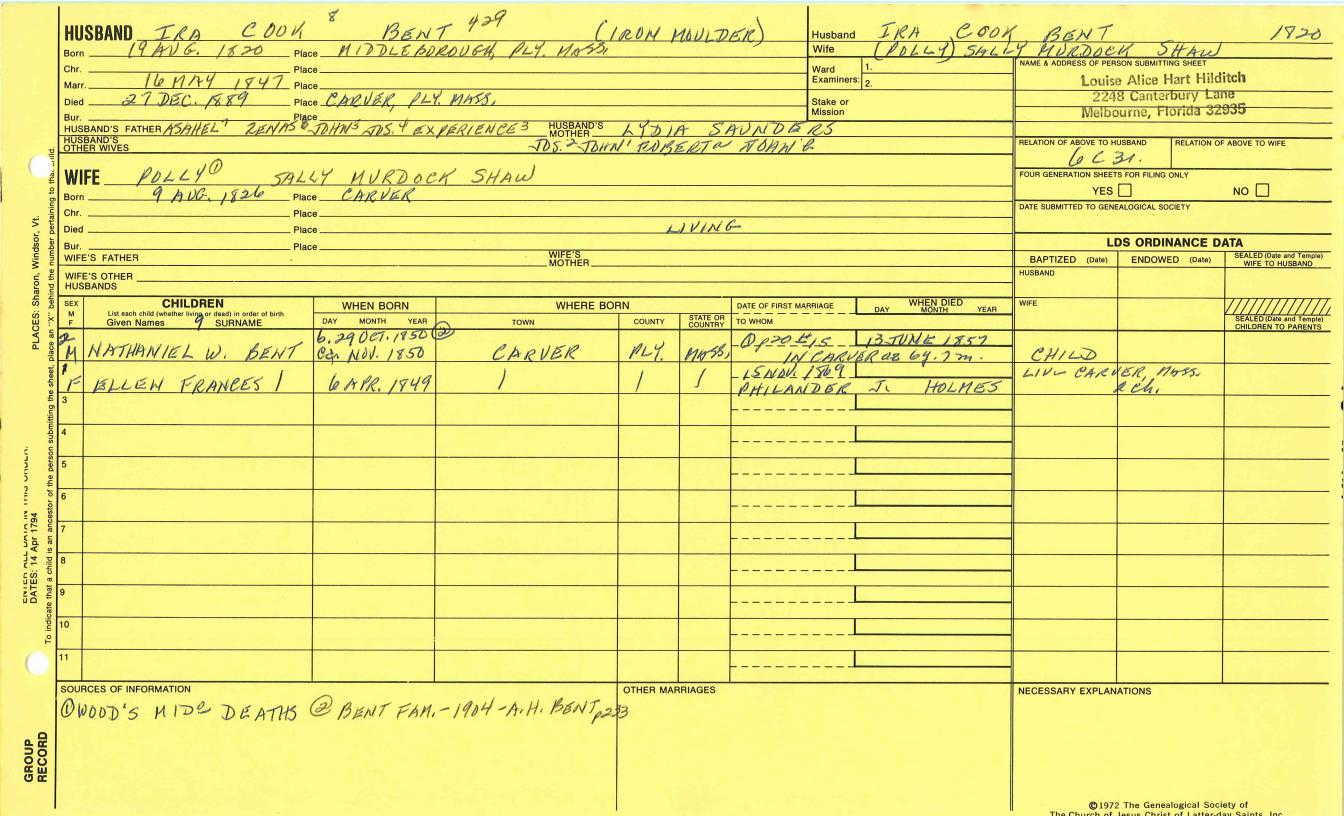 HUSBAND IRA COOK 8 BENT 429 (IRON MOULDER)
Born 19 AUG. 1820 Place MIDDLEBOROUGH, PLY. MASS.
Chr. Place
Marr. 16 MAY 1847 Place
Died 27 DEC. 1889 Place CARVER, PLY. MASS.
Bur. Place
HUSBAND'S FATHER ASAHEL7 ZENAS6 JOHN5 JOS.4 EXPERIENCE3 HUSBAND'S MOTHER LYDIA SAUNDERS
HUSBAND'S OTHER WIVES JOS.2 JOHN1 ROBERT
WIFE POLLY① SALLY MURDOCK SHAW
Born 9 AUG. 1826 Place CARVER
Chr. Place
Died Place LIVING
Bur. Place
WIFE'S FATHER WIFE'S MOTHER
WIFE'S OTHER HUSBANDS
Husband IRA COOK BENT 1820
Wife (POLLY) SALLY MURDOCK SHAW
Ward 1.
Examiners: 2.
Stake or Mission
NAME & ADDRESS OF PERSON SUBMITTING SHEET
Louise Alice Hart Hilditch
2248 Canterbury Lane
Melbourne, Florida 32935
RELATION OF ABOVE TO HUSBAND RELATION OF ABOVE TO WIFE
6 C 3r.
FOUR GENERATION SHEETS FOR FILING ONLY
YES NO
DATE SUBMITTED TO GENEALOGICAL SOCIETY
LDS ORDINANCE DATA
BAPTIZED (Date) ENDOWED (Date) SEALED (Date and Temple) WIFE TO HUSBAND
HUSBAND
WIFE
SEALED (Date and Temple) CHILDREN TO PARENTS
SEX M F CHILDREN WHEN BORN WHERE BORN DATE OF FIRST MARRIAGE WHEN DIED
List each child (whether living or dead) in order of birth
Given Names 9 SURNAME DAY MONTH YEAR TOWN COUNTY STATE OR COUNTRY TO WHOM DAY MONTH YEAR
2 6. 29 OCT. 1850 ② 13 JUNE 1857
M NATHANIEL W. BENT NOV. 1850 CARVER PLY. MASS. IN CARVER ae 6y. 7m. CHILD
1 15 NOV. 1869 LIV- CARVER, MASS.
F ELLEN FRANCES 6 APR. 1849 PHILANDER J. HOLMES ch.
3
4
5
6
7
8
9
10
11
SOURCES OF INFORMATION OTHER MARRIAGES NECESSARY EXPLANATIONS
① WOOD'S MIDo DEATHS ② BENT FAM. - 1904 - A.H. BENT p233
©1972 The Genealogical Society of
The Church of Jesus Christ of Latter-day Saints, Inc.
PLACES: Sharon, Windsor, Vt.
ENTER ALL DATA IN THIS ORDER:
DATES: 14 Apr 1794
To indicate that a child is an ancestor of the person submitting the sheet, place an "X" behind the number pertaining to that child.
GROUP RECORD